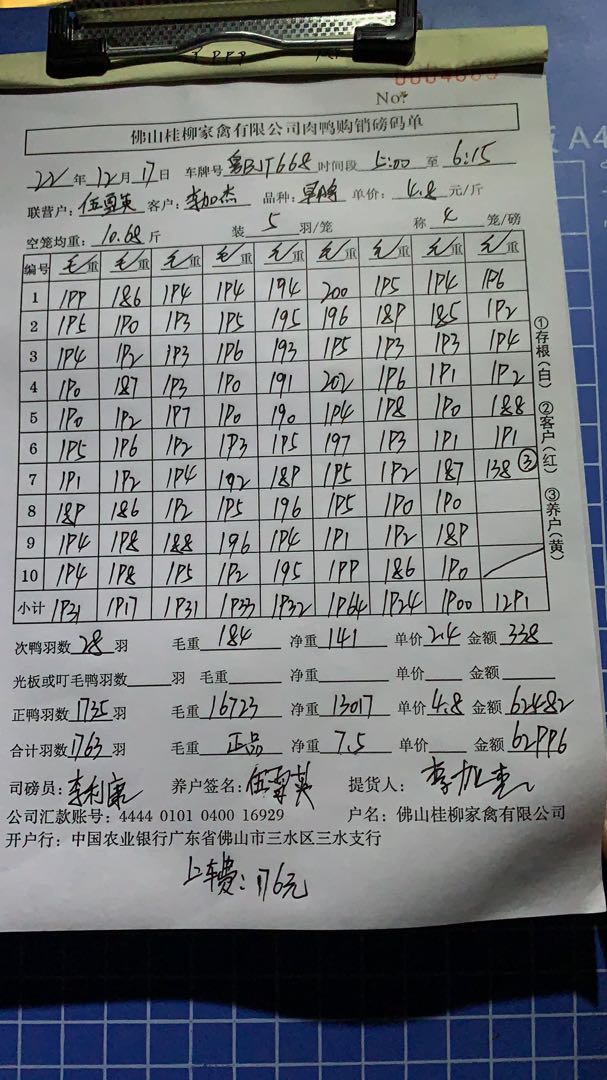 No:
佛山桂柳家禽有限公司肉鸭购销磅码单
22 年 12 月 17 日 车牌号 粤BJT668 时间段 5:00 至 6:15
联营户: 伍勇英 客户: 李加杰 品种: 单价: 4.8 元/斤
空笼均重: 10.68 斤 装 5 羽/笼 称 4 笼/磅
编号 毛/重 毛/重 毛/重 毛/重 毛/重 毛/重 毛/重 毛/重 毛/重
1 199 186 194 194 194 200 195 194 196
2 195 190 193 195 195 196 189 185 192
3 194 192 193 196 193 195 193 193 194
4 190 187 193 190 191 202 196 191 192
5 190 192 197 190 190 194 198 190 188
6 195 196 192 193 195 197 193 191 191
7 191 192 194 192 189 195 192 187 138 ③
8 189 186 192 195 196 195 190 190
9 194 198 188 196 194 191 192 189
10 194 198 195 192 195 199 186 190
小计 1931 1917 1931 1933 1932 1964 1924 1900 1291
①存根(白) ②客户(红) ③养户(黄)
次鸭羽数 28 羽 毛重 184 净重 141 单价 2.4 金额 338
光板或叮毛鸭羽数 羽 毛重 净重 单价 金额
正鸭羽数 1735 羽 毛重 16723 净重 13017 单价 4.8 金额 62482
合计羽数 1763 羽 毛重 正品 净重 7.5 单价 金额 62996
司磅员: 李利康 养户签名: 伍勇英 提货人: 李加杰
公司汇款账号: 4444 0101 0400 16929 户名: 佛山桂柳家禽有限公司
开户行: 中国农业银行广东省佛山市三水区三水支行
上车费: 176元